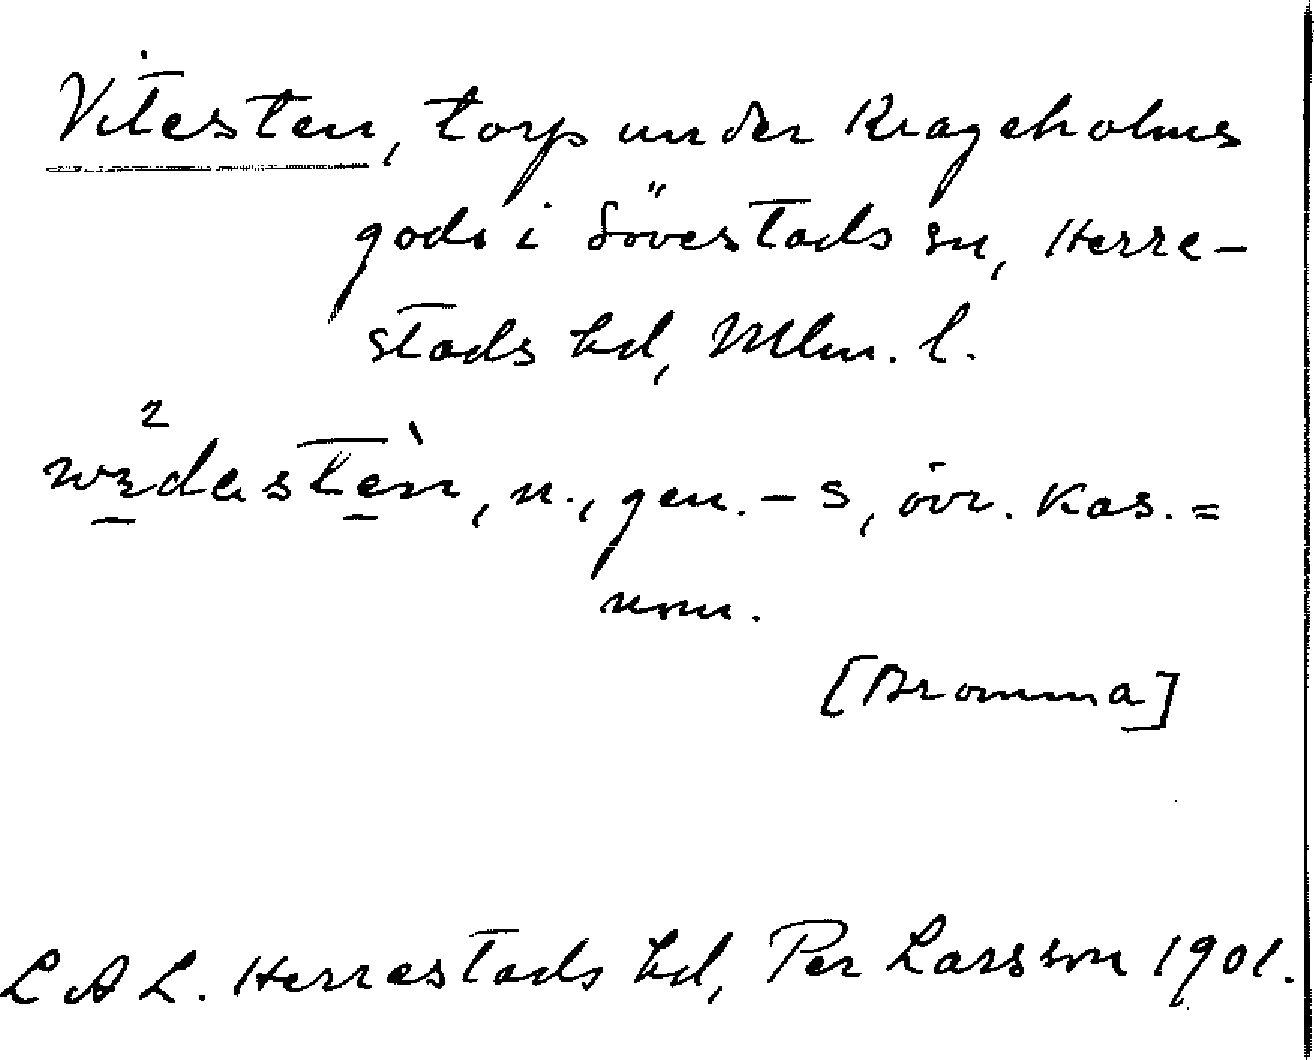 Vitesten, torp under Krageholms
gods i Sövestads sn, Herre-
stads hd, Mlm. l.
n., gen. - s, övr. kas. =
nom.
[Bromma]
L A L. Herrestads hd, Per Larsson 1901.